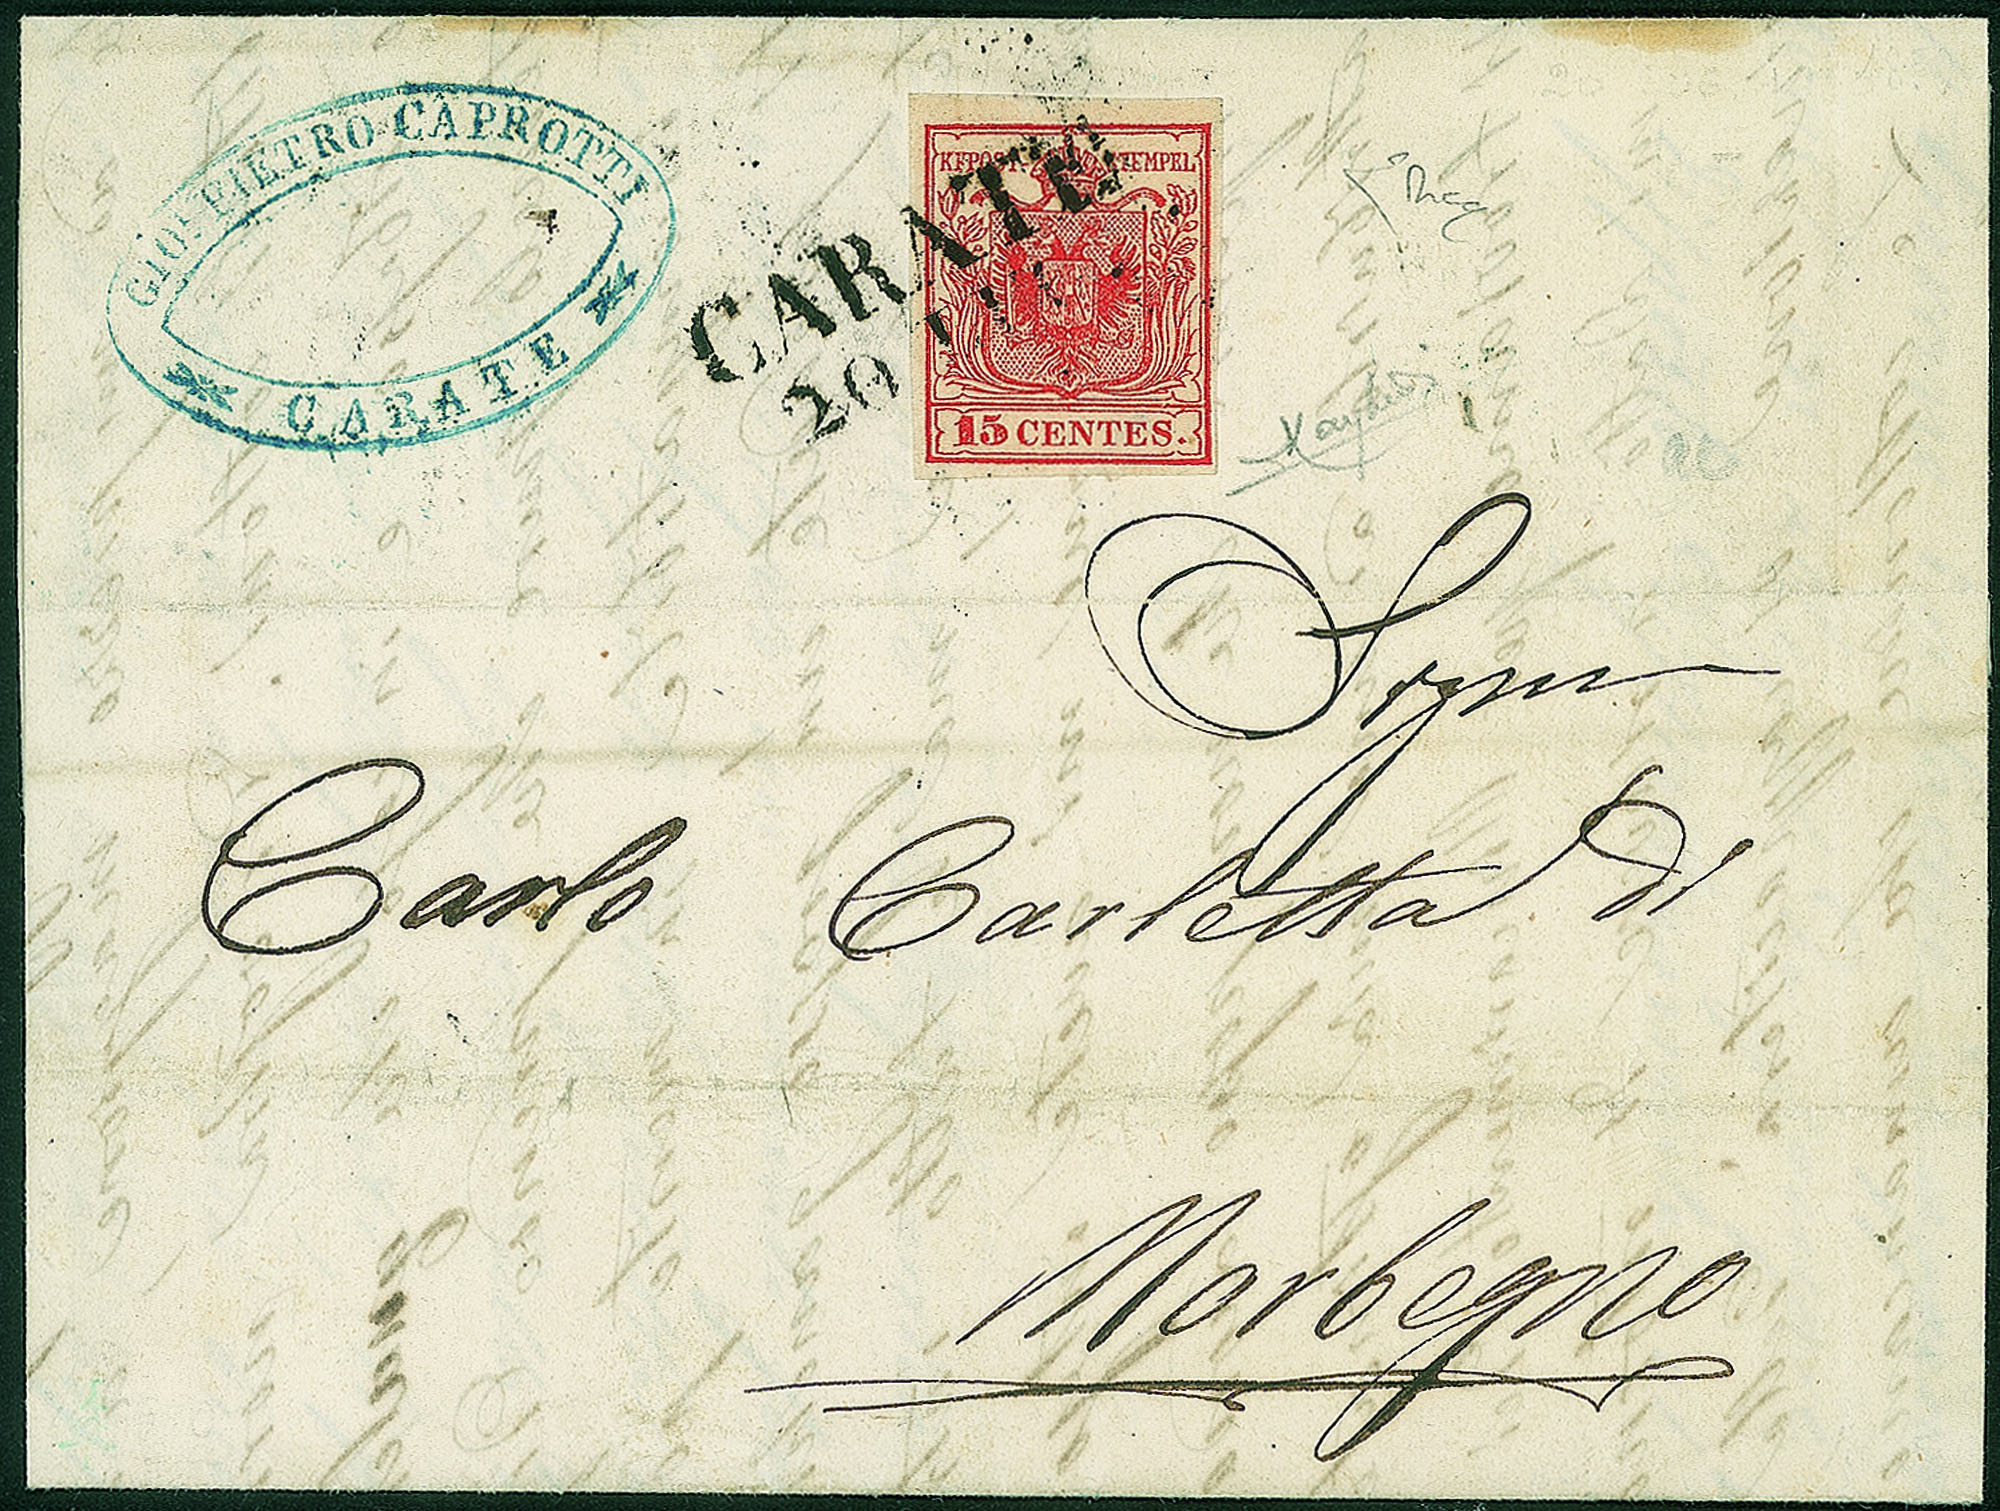 GIO. PIETRO CAPROTTI
CARATE
CARATE
20
KKPOST-STEMPEL
15 CENTES.
Sigr
Carlo Carletta di
Morbegno